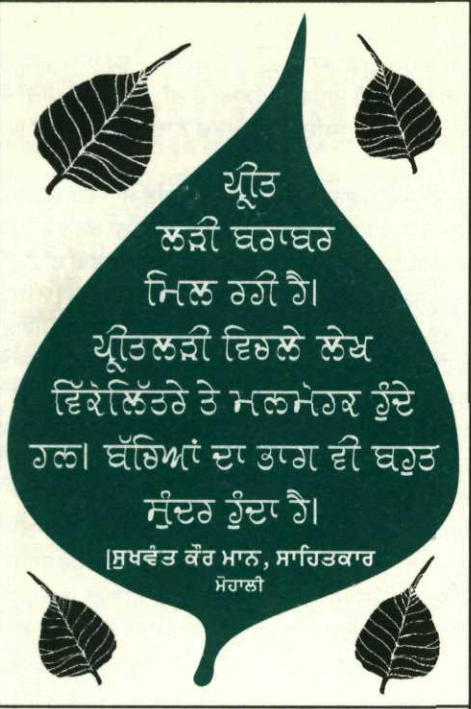 ਪ੍ਰੀਤ
ਲੜੀ ਬਰਾਬਰ
ਮਿਲ ਰਹੀ ਹੈ।
ਪ੍ਰੀਤਲੜੀ ਵਿਚਲੇ ਲੇਖ
ਵਿੱਕੋਲਿੱਤਰੇ ਤੇ ਮਨਮੋਹਕ ਹੁੰਦੇ
ਹਨ। ਬੱਚਿਆਂ ਦਾ ਭਾਗ ਵੀ ਬਹੁਤ
ਸੁੰਦਰ ਹੁੰਦਾ ਹੈ।
|ਸੁਖਵੰਤ ਕੌਰ ਮਾਨ, ਸਾਹਿਤਕਾਰ
ਮੋਹਾਲੀ